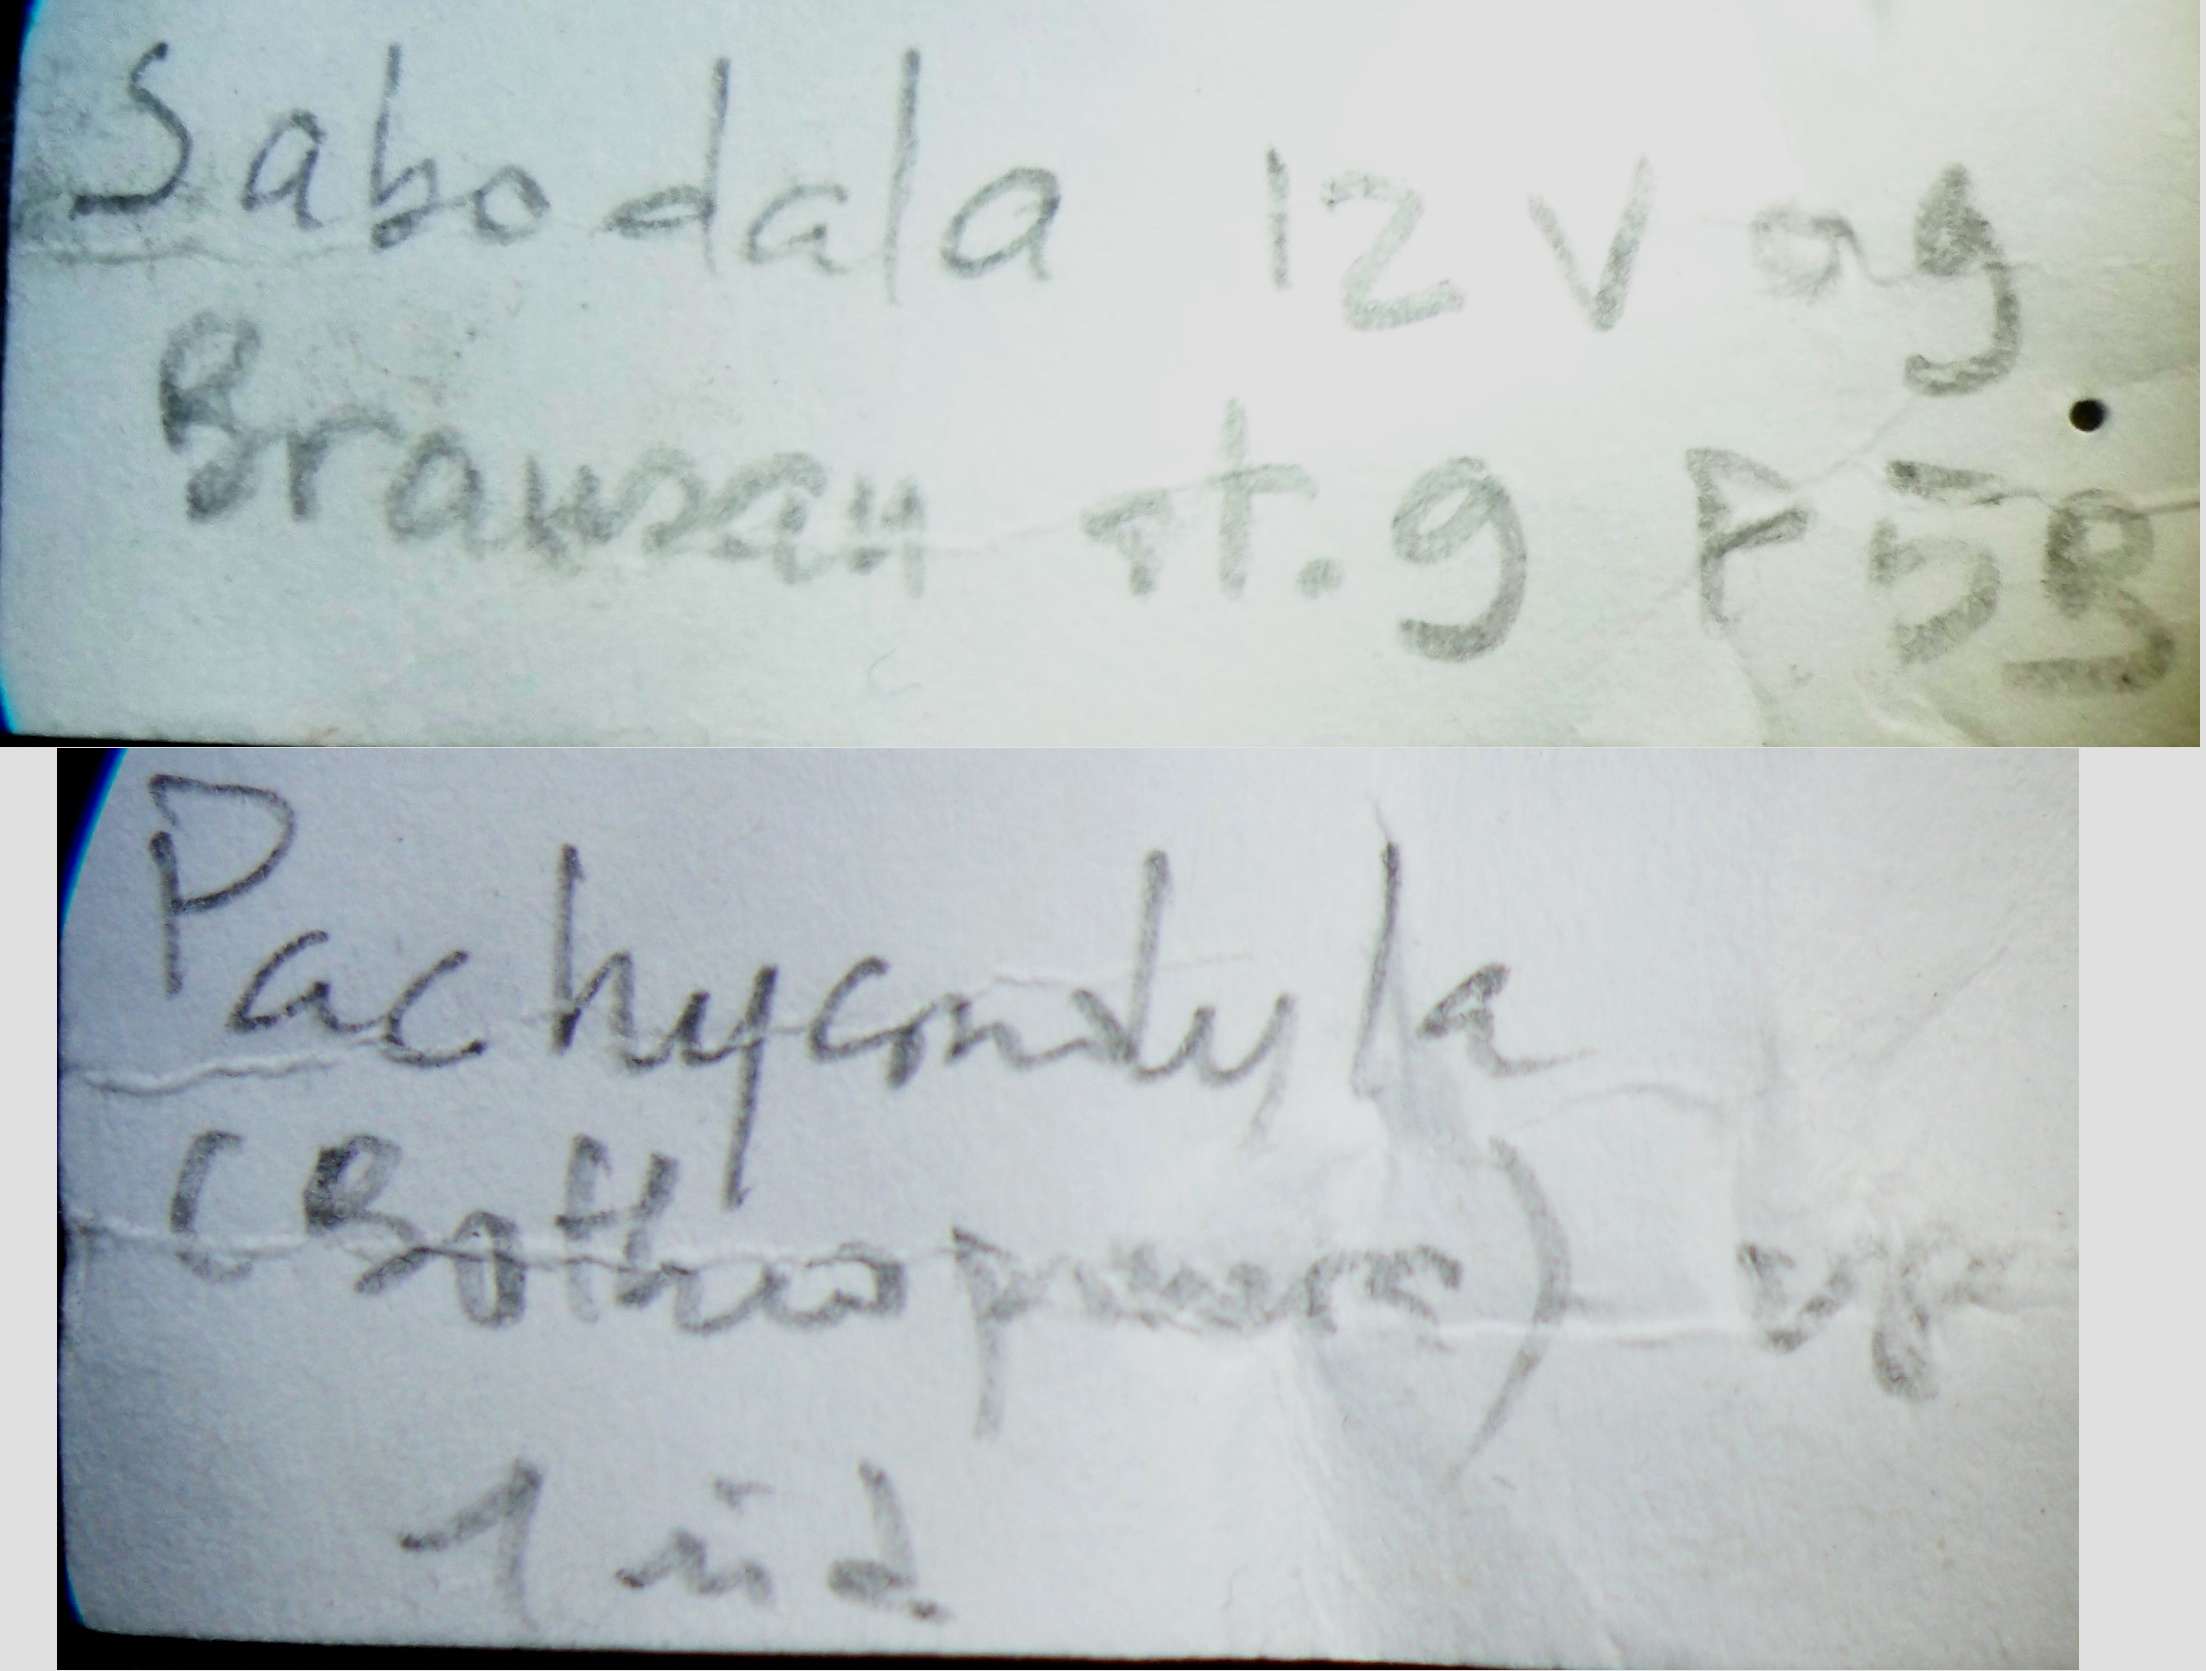 Sabodala 12 V 09
Brawsan st. 9 P 5 9
Pachycondyla
(Bothroponera) sp
1 id